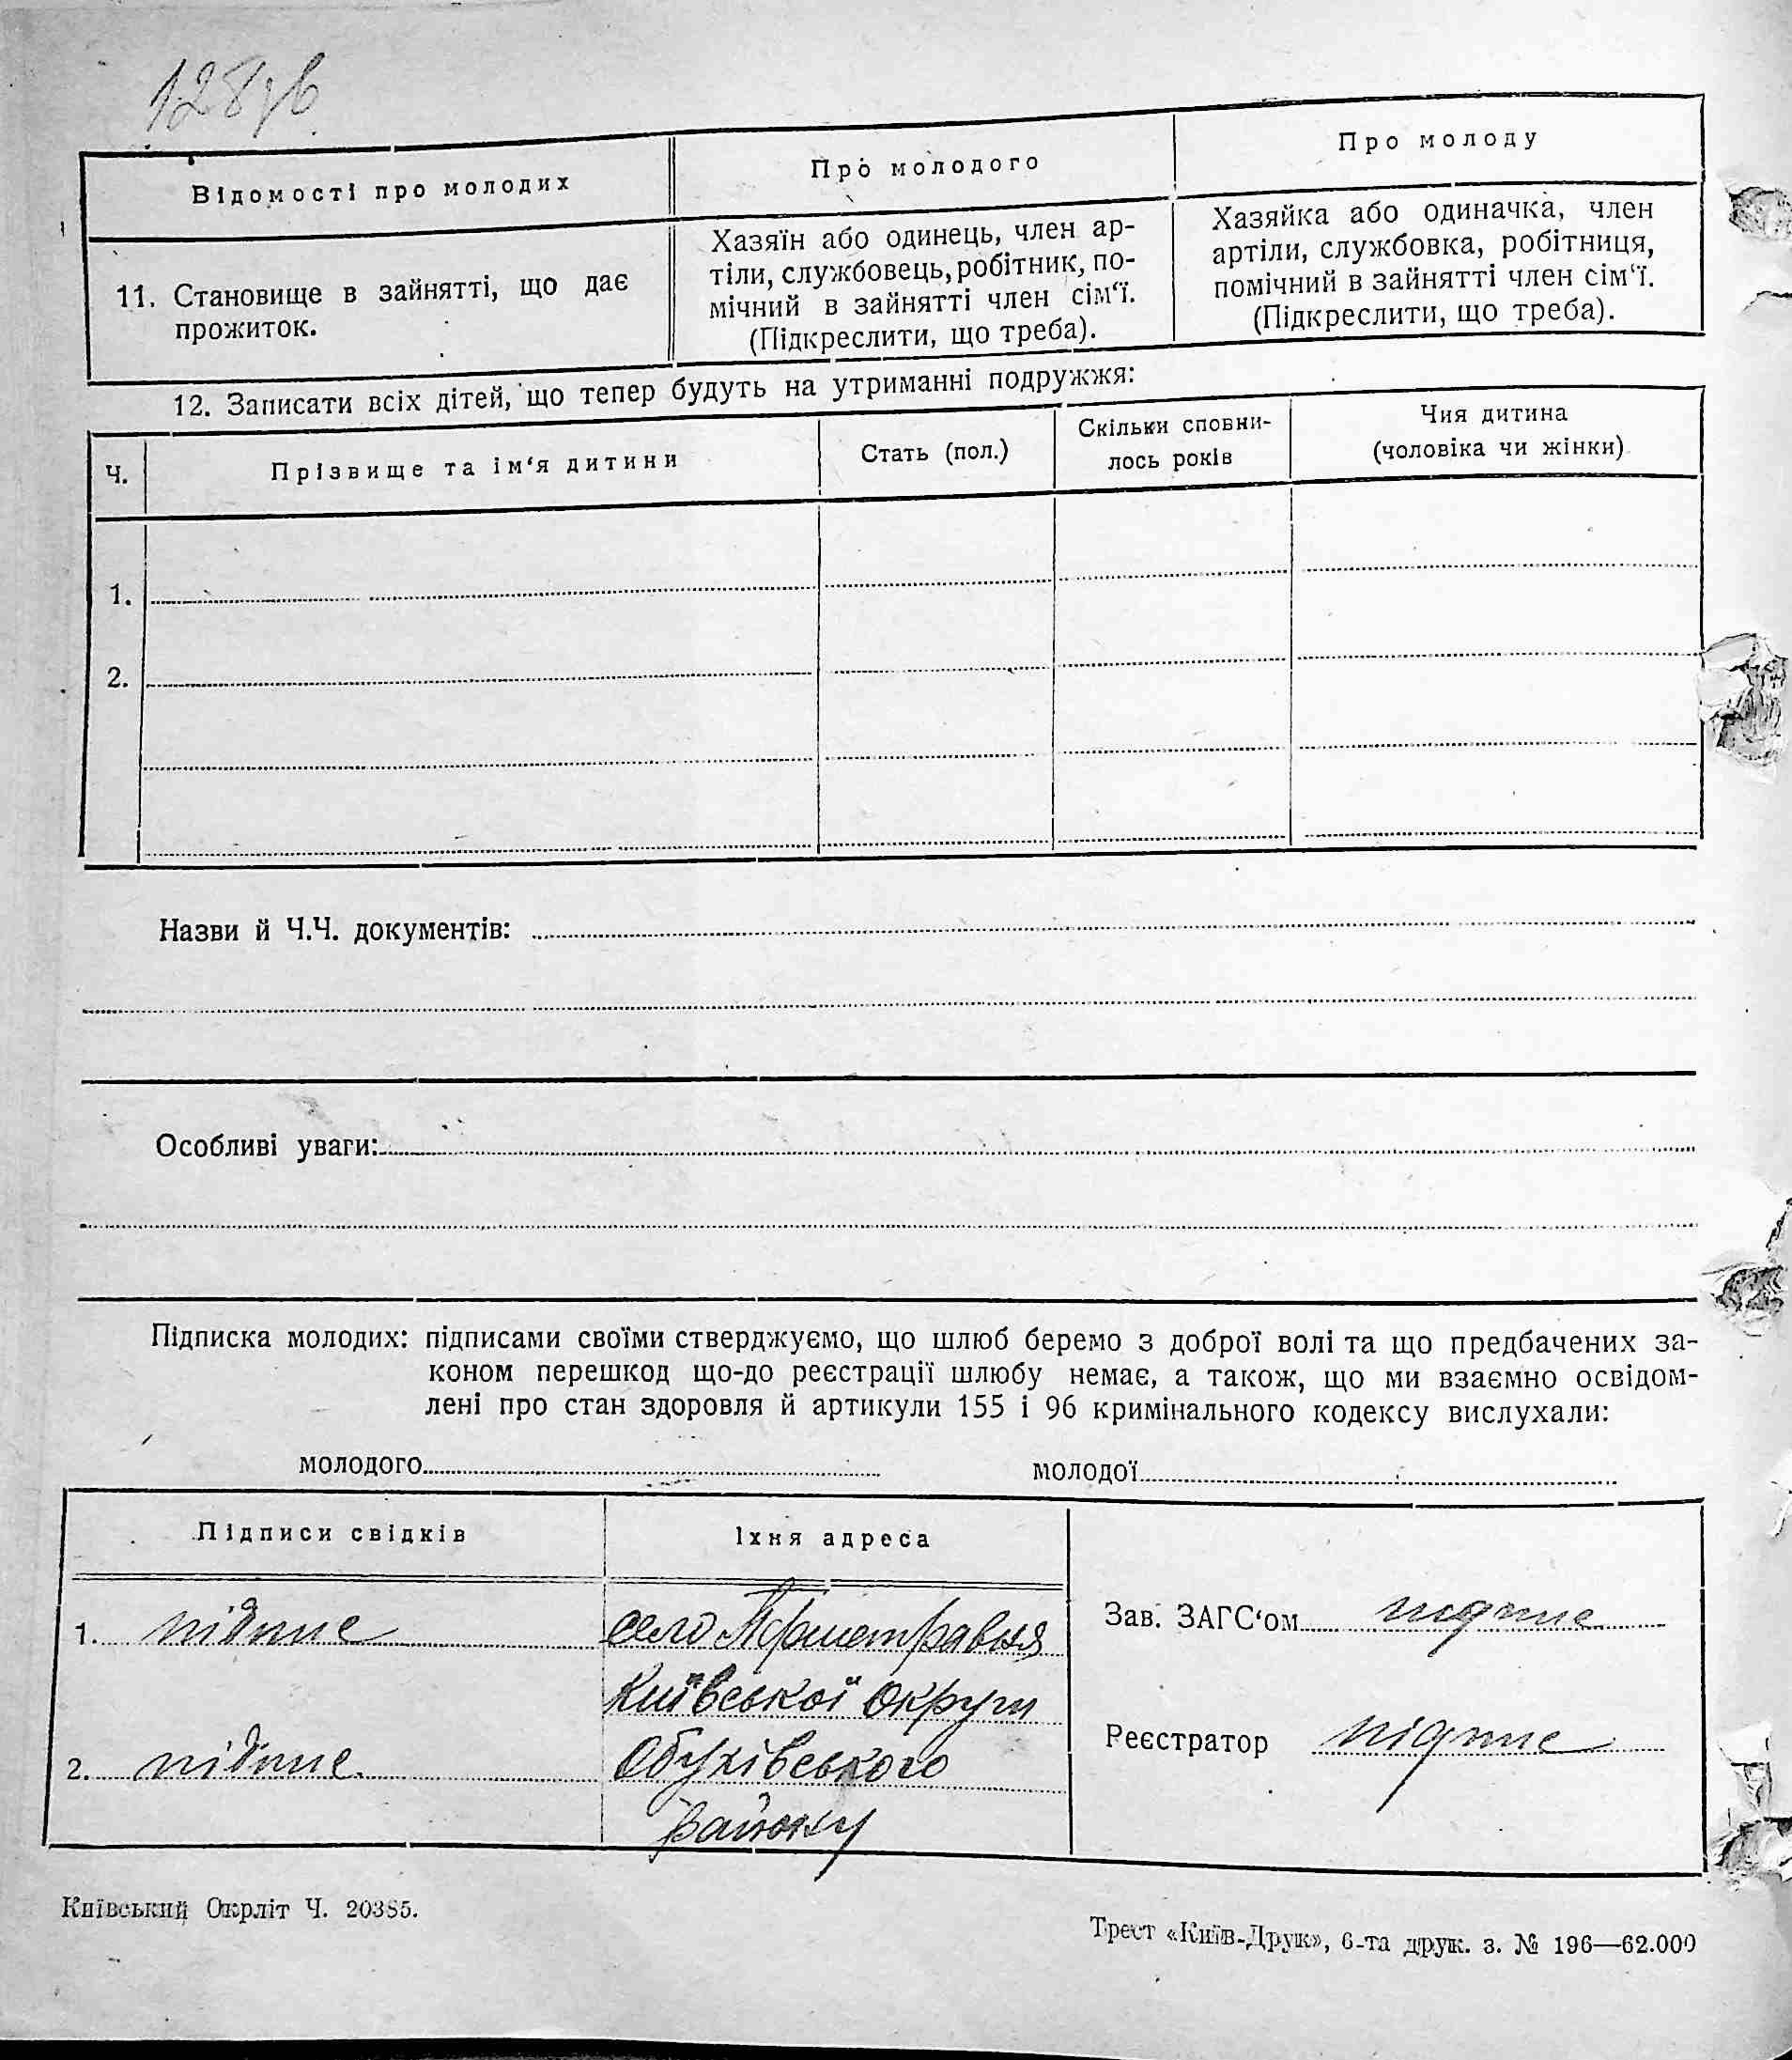 128зв
Відомості про молодих
Про молодого
Про молоду
11. Становище в зайнятті, що дає
прожиток.
Хазяїн або одинець, член ар-
тіли, службовець, робітник, по-
мічний в зайнятті член сім‘ї.
(Підкреслити, що треба).
Хазяйка або одиначка, член
артіли, службовка, робітниця,
помічний в зайнятті член сім‘ї.
(Підкреслити, що треба).
12. Записати всіх дітей, що тепер будуть на утриманні подружжя:
Ч.
Прізвище та ім‘я дитини
Стать (пол.)
Скільки сповни-
лось років
Чия дитина
(чоловіка чи жінки)
1.
2.
Назви й Ч.Ч. документів:
Особливі уваги:
Підписка молодих: підписами своїми стверджуємо, що шлюб беремо з доброї волі та що предбачених за-
коном перешкод що-до реєстрації шлюбу немає, а також, що ми взаємно освідом-
лені про стан здоровля й артикули 155 і 96 кримінального кодексу вислухали:
молодого
молодої
Підписи свідків
Їхня адреса
1. підпис
село
Київської Округи
2. підпис.
Обухівського
Району
Зав. ЗАГС‘ом підпис
Реєстратор підпис
Київський Окрліт Ч. 20385.
Трест «Київ-Друк», 6-та друк. з. № 196—62.000